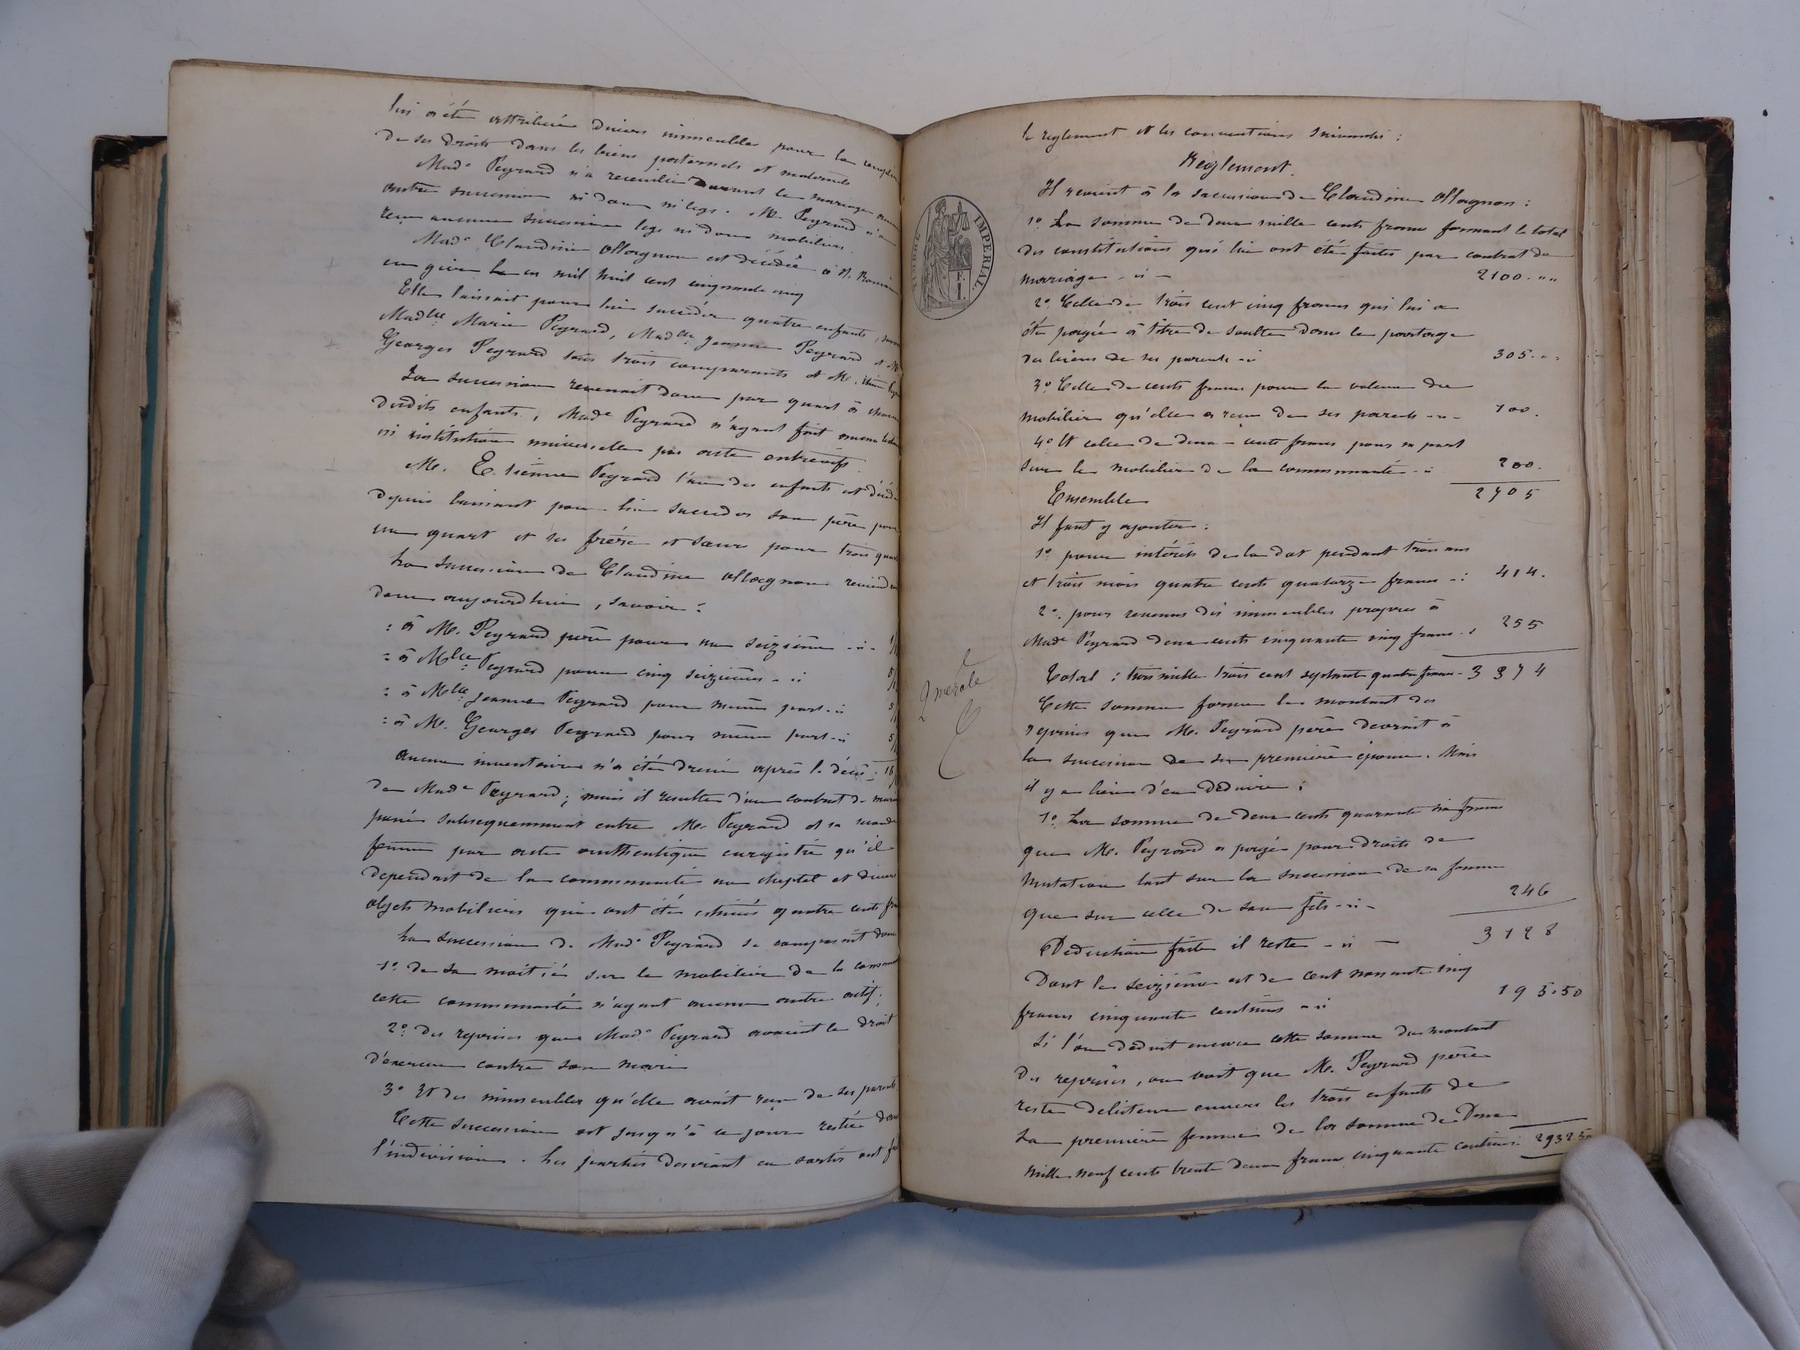 lui a été attribuée divers immeubles pour la
de ses droits dans les biens paternels et maternels
Made Peyrard n'a recueilli durant le mariage
autre succession ni don ni legs. M. Peyrard n'a
reçu aucune succession legs ni dons mobiliers.
Made Claudine Allognon est décédée à St. Romain
en gier le mil huit cent cinquante cinq
Elle laissait pour lui succéder quatre enfants,
Madlle Marie Peyrard, Madlle Jeanne Peyrard et M.
Georges Peyrard tous trois comparants et M.
La succession revenait donc par quart à
desdits enfants, Made Peyrard n'ayant fait aucun
ni institution universelle par acte entrevifs.
M. Etienne Peyrard l'un des enfants est
depuis laissant pour lui succeder son père pour
un quart et ses frère et sœur pour trois
La succession de Claudine Allognon
donc aujourd'hui, savoir :
: à M. Peyrard père pour un seizième -ii-
: à Mlle Peyrard pour cinq seizièmes -ii
: à Mlle Jeanne Peyrard pour même part -ii
: à M. Georges Peyrard pour même part -ii
Aucun inventaire n'a été dressé après le décès
de Made Peyrard; mais il resulte d'un contrat de
passé subsequemment entre M. Peyrard et sa
femme par acte authentique enregistré qu'il
dependait de la communauté un cheptel et divers
objets mobiliers qui ont été estimés quatre cents
La succession de Made Peyrard se composait donc
1° de sa moitié sur le mobilier de la
cette communauté n'ayant aucun autre actif;
2° Des reprises que Made Peyrard avait le droit
d'exercer contre son mari
3° Et des immeubles qu'elle avait reçu de ses parents
Cette succession est jusqu'à ce jour restée dans
l'indivision. Les parties desirant en sortir ont
le reglement et les conventions suivantes :
Reglement.
Il revient à la succession de Claudine Allognon :
1° La somme de deux mille cents francs formant le total
des constitutions qui lui ont été faites par contrat de
mariage -ii- 2100. ""
2° Celle de trois cent cinq francs qui lui a
été payée à titre de soulte dans le partage
des biens de ses parents -ii 305. ""
3° Celle de cents francs pour la valeur du
mobilier qu'elle a reçu de ses parents -ii- 100.
4° Et celle de deux-cents francs pour sa part
sur le mobilier de la communauté -ii 200.
Ensemble 2705
Il faut y ajouter :
1° pour intérêts de la dot pendant trois ans
et trois mois quatre cents quatorze francs -ii 414.
2° pour revenus des immeubles propres à
Made Peyrard deux cents cinquante cinq francs 255
Total : trois mille trois cent septante quatre francs - 3374
Cette somme forme le montant des
reprises que M. Peyrard père devrait à
la succession de sa première épouse. Mais
il y a lieu d'en déduire :
1° La somme de deux cents quarante six francs
que M. Peyrard a payée pour droits de
mutation tant sur la succession de sa femme
que sur celle de son fils -ii- 246
Déduction faite il reste -ii- 3128
Dont le seizième est de cent nonante cinq
francs cinquante centimes -ii 195.50
Si l'on déduit encore cette somme du montant
des reprises, on voit que M. Peyrard père
reste debiteur envers les trois enfants de
sa première femme de la somme de Deux
mille neuf cents trente deux francs cinquante centimes. 2932.50
TIMBRE IMPERIAL.